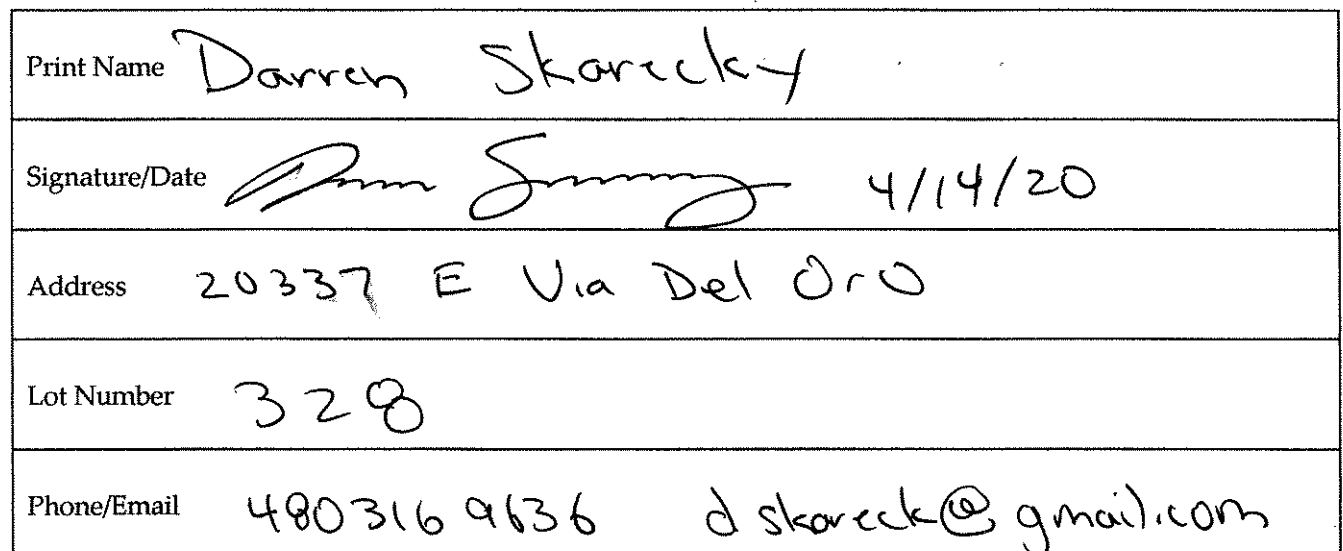 Print Name Darren Skarecky
Signature/Date 4/14/20
Address 20337 E Via Del Oro
Lot Number 328
Phone/Email 4803169636 dskareck@gmail.com